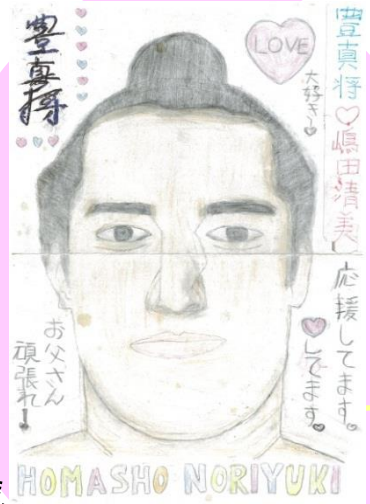 豊真将
LOVE
大好き〜♡
豊真将♡嶋田清美
応援してます。
♡してます。
お父さん
頑張れ!
HOMASHO NORIYUKI